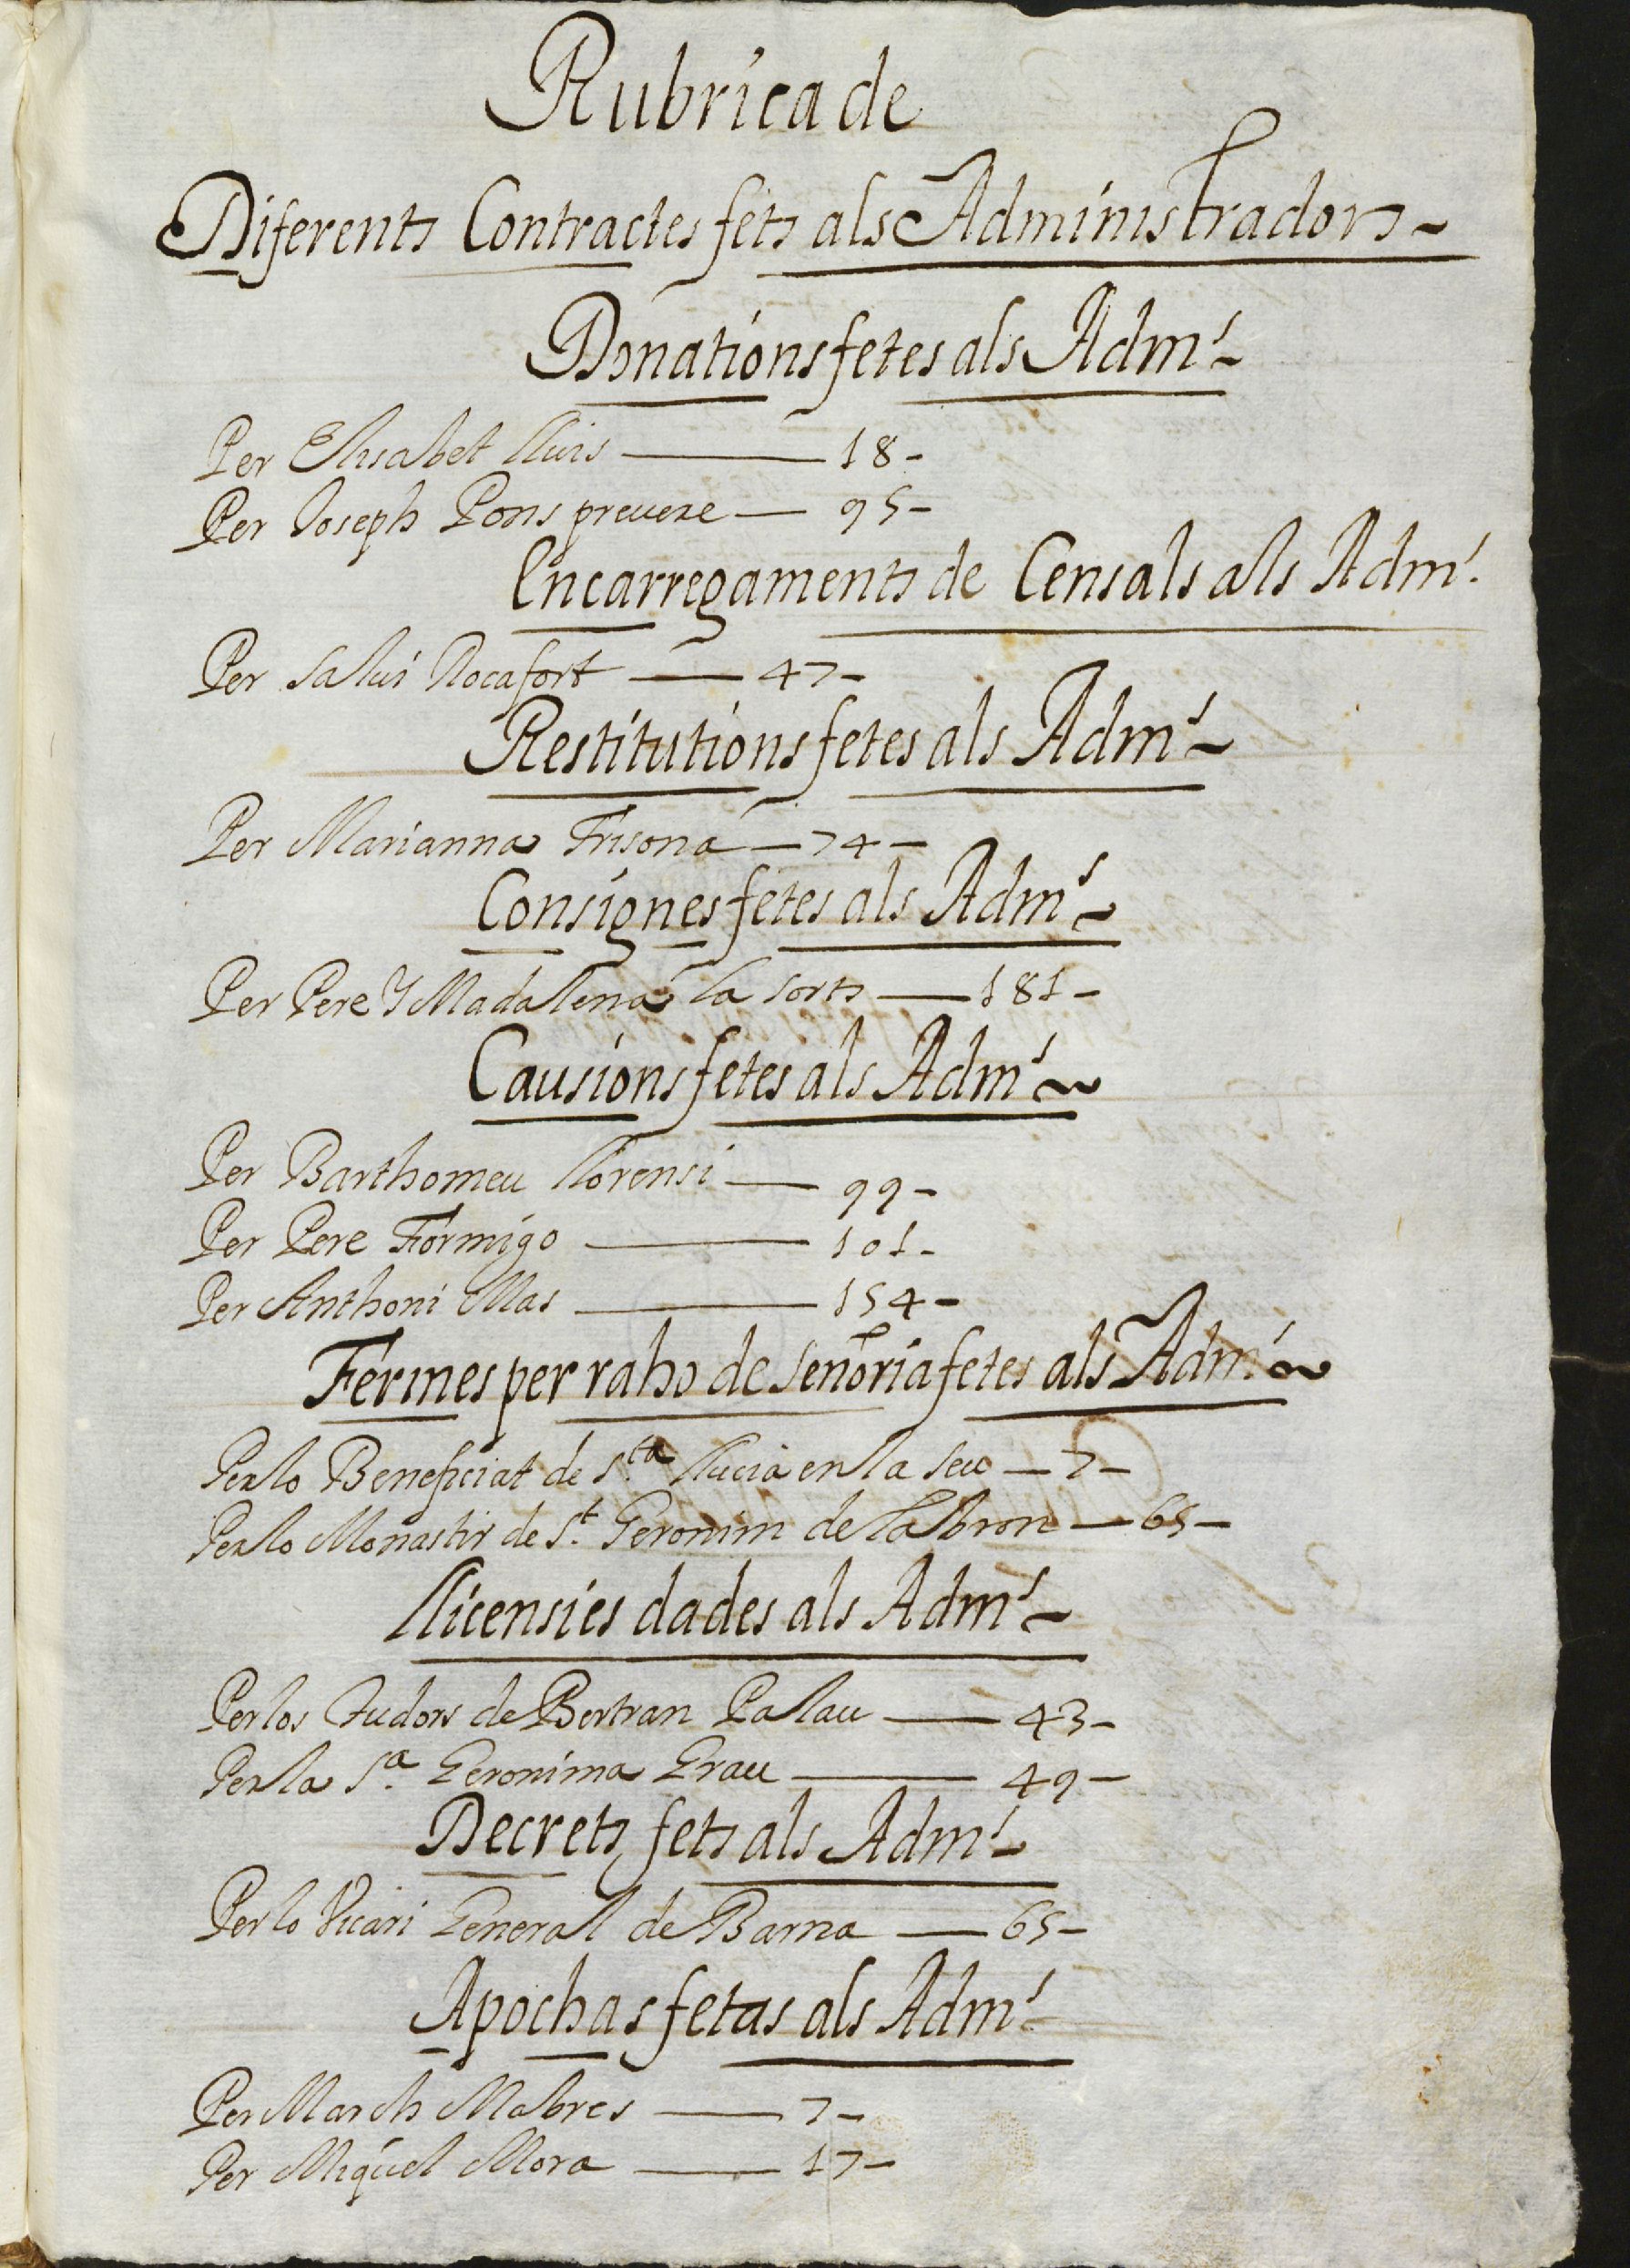 Rubrica de
Diferents Contractes fets als Administradors
Donations fetes als Adm.s
Per Elisabet lluis — 18 -
Per Joseph Pons prevere — 95 -
Encarregaments de Censals als Adm.s
Per Salvi Rocafort — 47 -
Restitutions fetes als Adm.s
Per Marianna Frisona — 74 -
Consignes fetes als Adm.s
Per Pere Y Madalena la sorts — 181 -
Causions fetes als Adm.s
Per Barthomeu llorensi — 99 -
Per Pere Formigo — 101 -
Per Anthoni Mas — 154 -
Fermes per raho de señoria fetes als Adm.s
Per lo Beneficiat de S.ta llucia en la Seu — 7 -
Per lo Monastir de S.t Geronim de la Vall de bron — 65 -
llicensies dades als Adm.s
Per los tudors de Bertran Palau — 43 -
Per la S.a Geronima Grau — 49 -
Decrets fets als Adm.s
Per lo Vicari General de Barna — 65 -
Apochas fetas als Adm.s
Per March Mabres — 7 -
Per Miquel Mora — 17 -